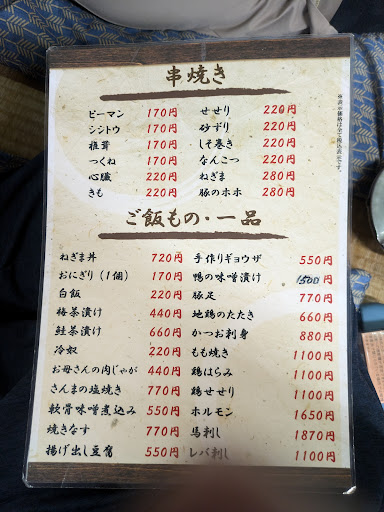 串焼き
ピーマン 170円
シシトウ 170円
椎茸 170円
つくね 170円
心臓 220円
きも 220円
せせり 220円
砂ずり 220円
しそ巻き 220円
なんこつ 220円
ねぎま 280円
豚のホホ 280円
※表示価格は全て税込表示です。
ご飯もの・一品
ねぎま丼 720円
おにぎり(1個) 170円
白飯 220円
梅茶漬け 440円
鮭茶漬け 660円
冷奴 220円
お母さんの肉じゃが 440円
さんまの塩焼き 770円
軟骨味噌煮込み 550円
焼きなす 770円
揚げ出し豆腐 550円
手作りギョウザ 550円
鴨の味噌漬け 1500円
豚足 770円
地鶏のたたき 660円
かつお刺身 880円
もも焼き 1100円
鶏はらみ 1100円
鶏せせり 1100円
ホルモン 1650円
馬刺し 1870円
レバ刺し 1100円